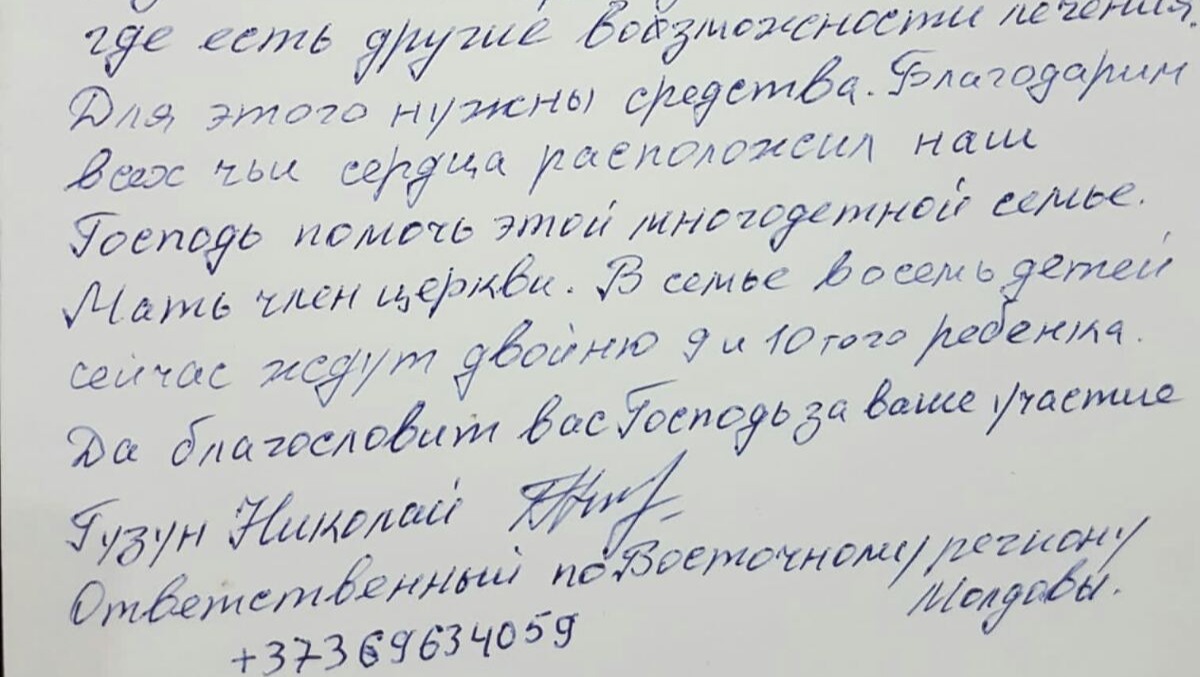 где есть другие возможности лечения.
Для этого нужны средства. Благодарим
всех чьи сердца расположил наш
Господь помочь этой многодетной семье.
Мать член церкви. В семье восемь детей
сейчас ждут двойню 9 и 10того ребенка.
Да благословит вас Господь за ваше участие
Гузун Николай
Ответственный по Восточному региону
Молдовы.
+37369634059